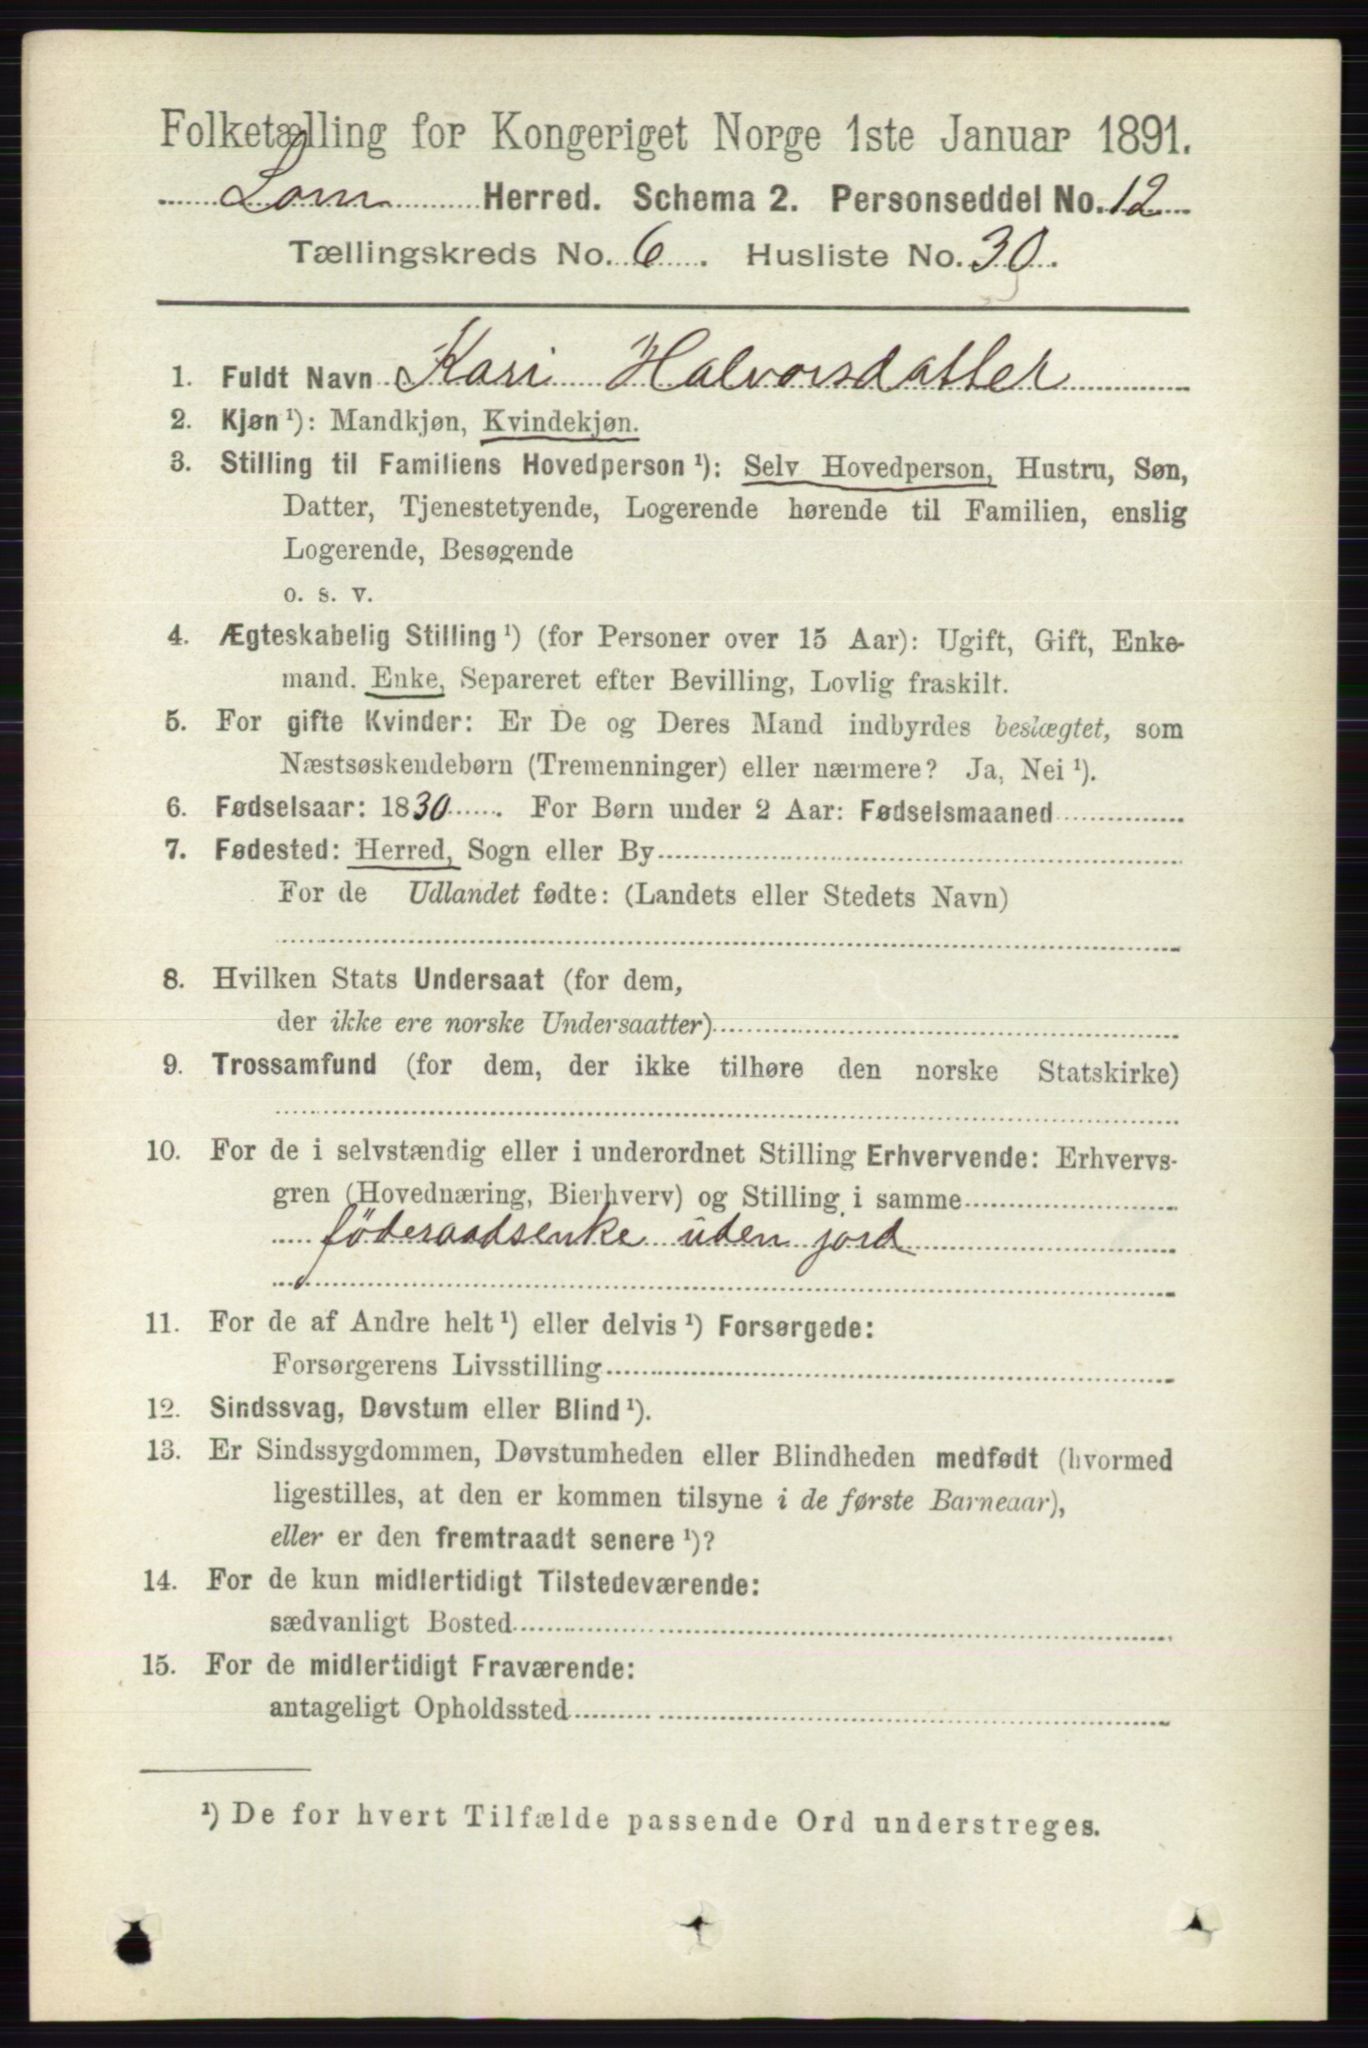 Folketælling for Kongeriget Norge 1ste Januar 1891.
Lom Herred. Schema 2. Personseddel No. 12
Tællingskreds No. 6. Husliste No. 30.
1. Fuldt Navn Kari Halvorsdatter
2. Kjøn ¹): Mandkjøn, Kvindekjøn.
3. Stilling til Familiens Hovedperson ¹): Selv Hovedperson, Hustru, Søn,
Datter, Tjenestetyende, Logerende hørende til Familien, enslig
Logerende, Besøgende
o. s. v.
4. Ægteskabelig Stilling ¹) (for Personer over 15 Aar): Ugift, Gift, Enke-
mand, Enke, Separeret efter Bevilling, Lovlig fraskilt.
5. For gifte Kvinder: Er De og Deres Mand indbyrdes beslægtet, som
Næstsøskendebørn (Tremenninger) eller nærmere? Ja, Nei ¹).
6. Fødselsaar: 1830. For Børn under 2 Aar: Fødselsmaaned
7. Fødested: Herred, Sogn eller By
For de Udlandet fødte: (Landets eller Stedets Navn)
8. Hvilken Stats Undersaat (for dem,
der ikke ere norske Undersaatter)
9. Trossamfund (for dem, der ikke tilhøre den norske Statskirke)
10. For de i selvstændig eller i underordnet Stilling Erhvervende: Erhvervs-
gren (Hovednæring, Bierhverv) og Stilling i samme
föderaadsenke uden jord
11. For de af Andre helt ¹) eller delvis ¹) Forsørgede:
Forsørgerens Livsstilling
12. Sindssvag, Døvstum eller Blind ¹).
13. Er Sindssygdommen, Døvstumheden eller Blindheden medfødt (hvormed
ligestilles, at den er kommen tilsyne i de første Barneaar),
eller er den fremtraadt senere ¹)?
14. For de kun midlertidigt Tilstedeværende:
sædvanligt Bosted
15. For de midlertidigt Fraværende:
antageligt Opholdssted
¹) De for hvert Tilfælde passende Ord understreges.